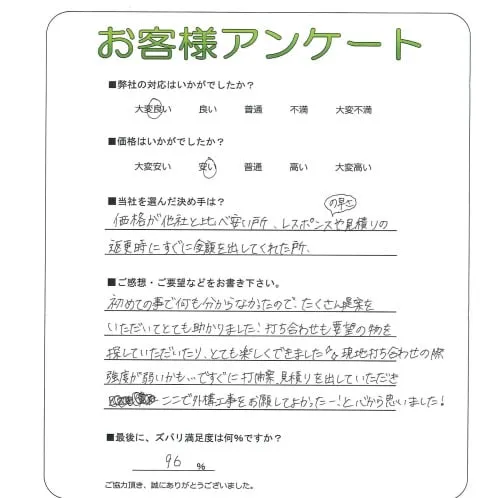 お客様アンケート
■弊社の対応はいかがでしたか？
大変良い 良い 普通 不満 大変不満
■価格はいかがでしたか？
大変安い 安い 普通 高い 大変高い
■当社を選んだ決め手は？
の早さ
価格が他社と比べ安い所、レスポンスや見積りの
返事時にすぐに金額を出してくれた所、
■ご感想・ご要望などをお書き下さい。
初めての事で何も分からなかったので、たくさん提案を
いただいてとても助かりました！打ち合わせも要望の物を
探していただいたり、とても楽しくできました 現地打ち合わせの際
強度が弱いかも…ですぐに打 案、見積りを出していただき
ここで外構工事をお願してよかったー！と心から思いました！
■最後に、ズバリ満足度は何％ですか？
96 ％
ご協力頂き、誠にありがとうございました。